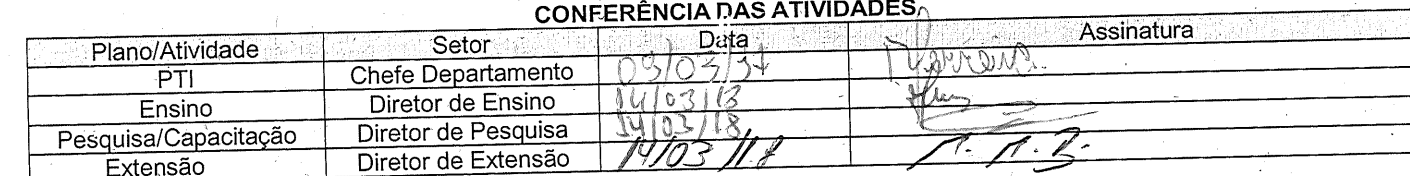 CONFERÊNCIA DAS ATIVIDADES
Plano/Atividade Setor Data Assinatura
PTI Chefe Departamento
Ensino Diretor de Ensino 14/03/18
Pesquisa/Capacitação Diretor de Pesquisa 14/03/18
Extensão Diretor de Extensão 14/03/18